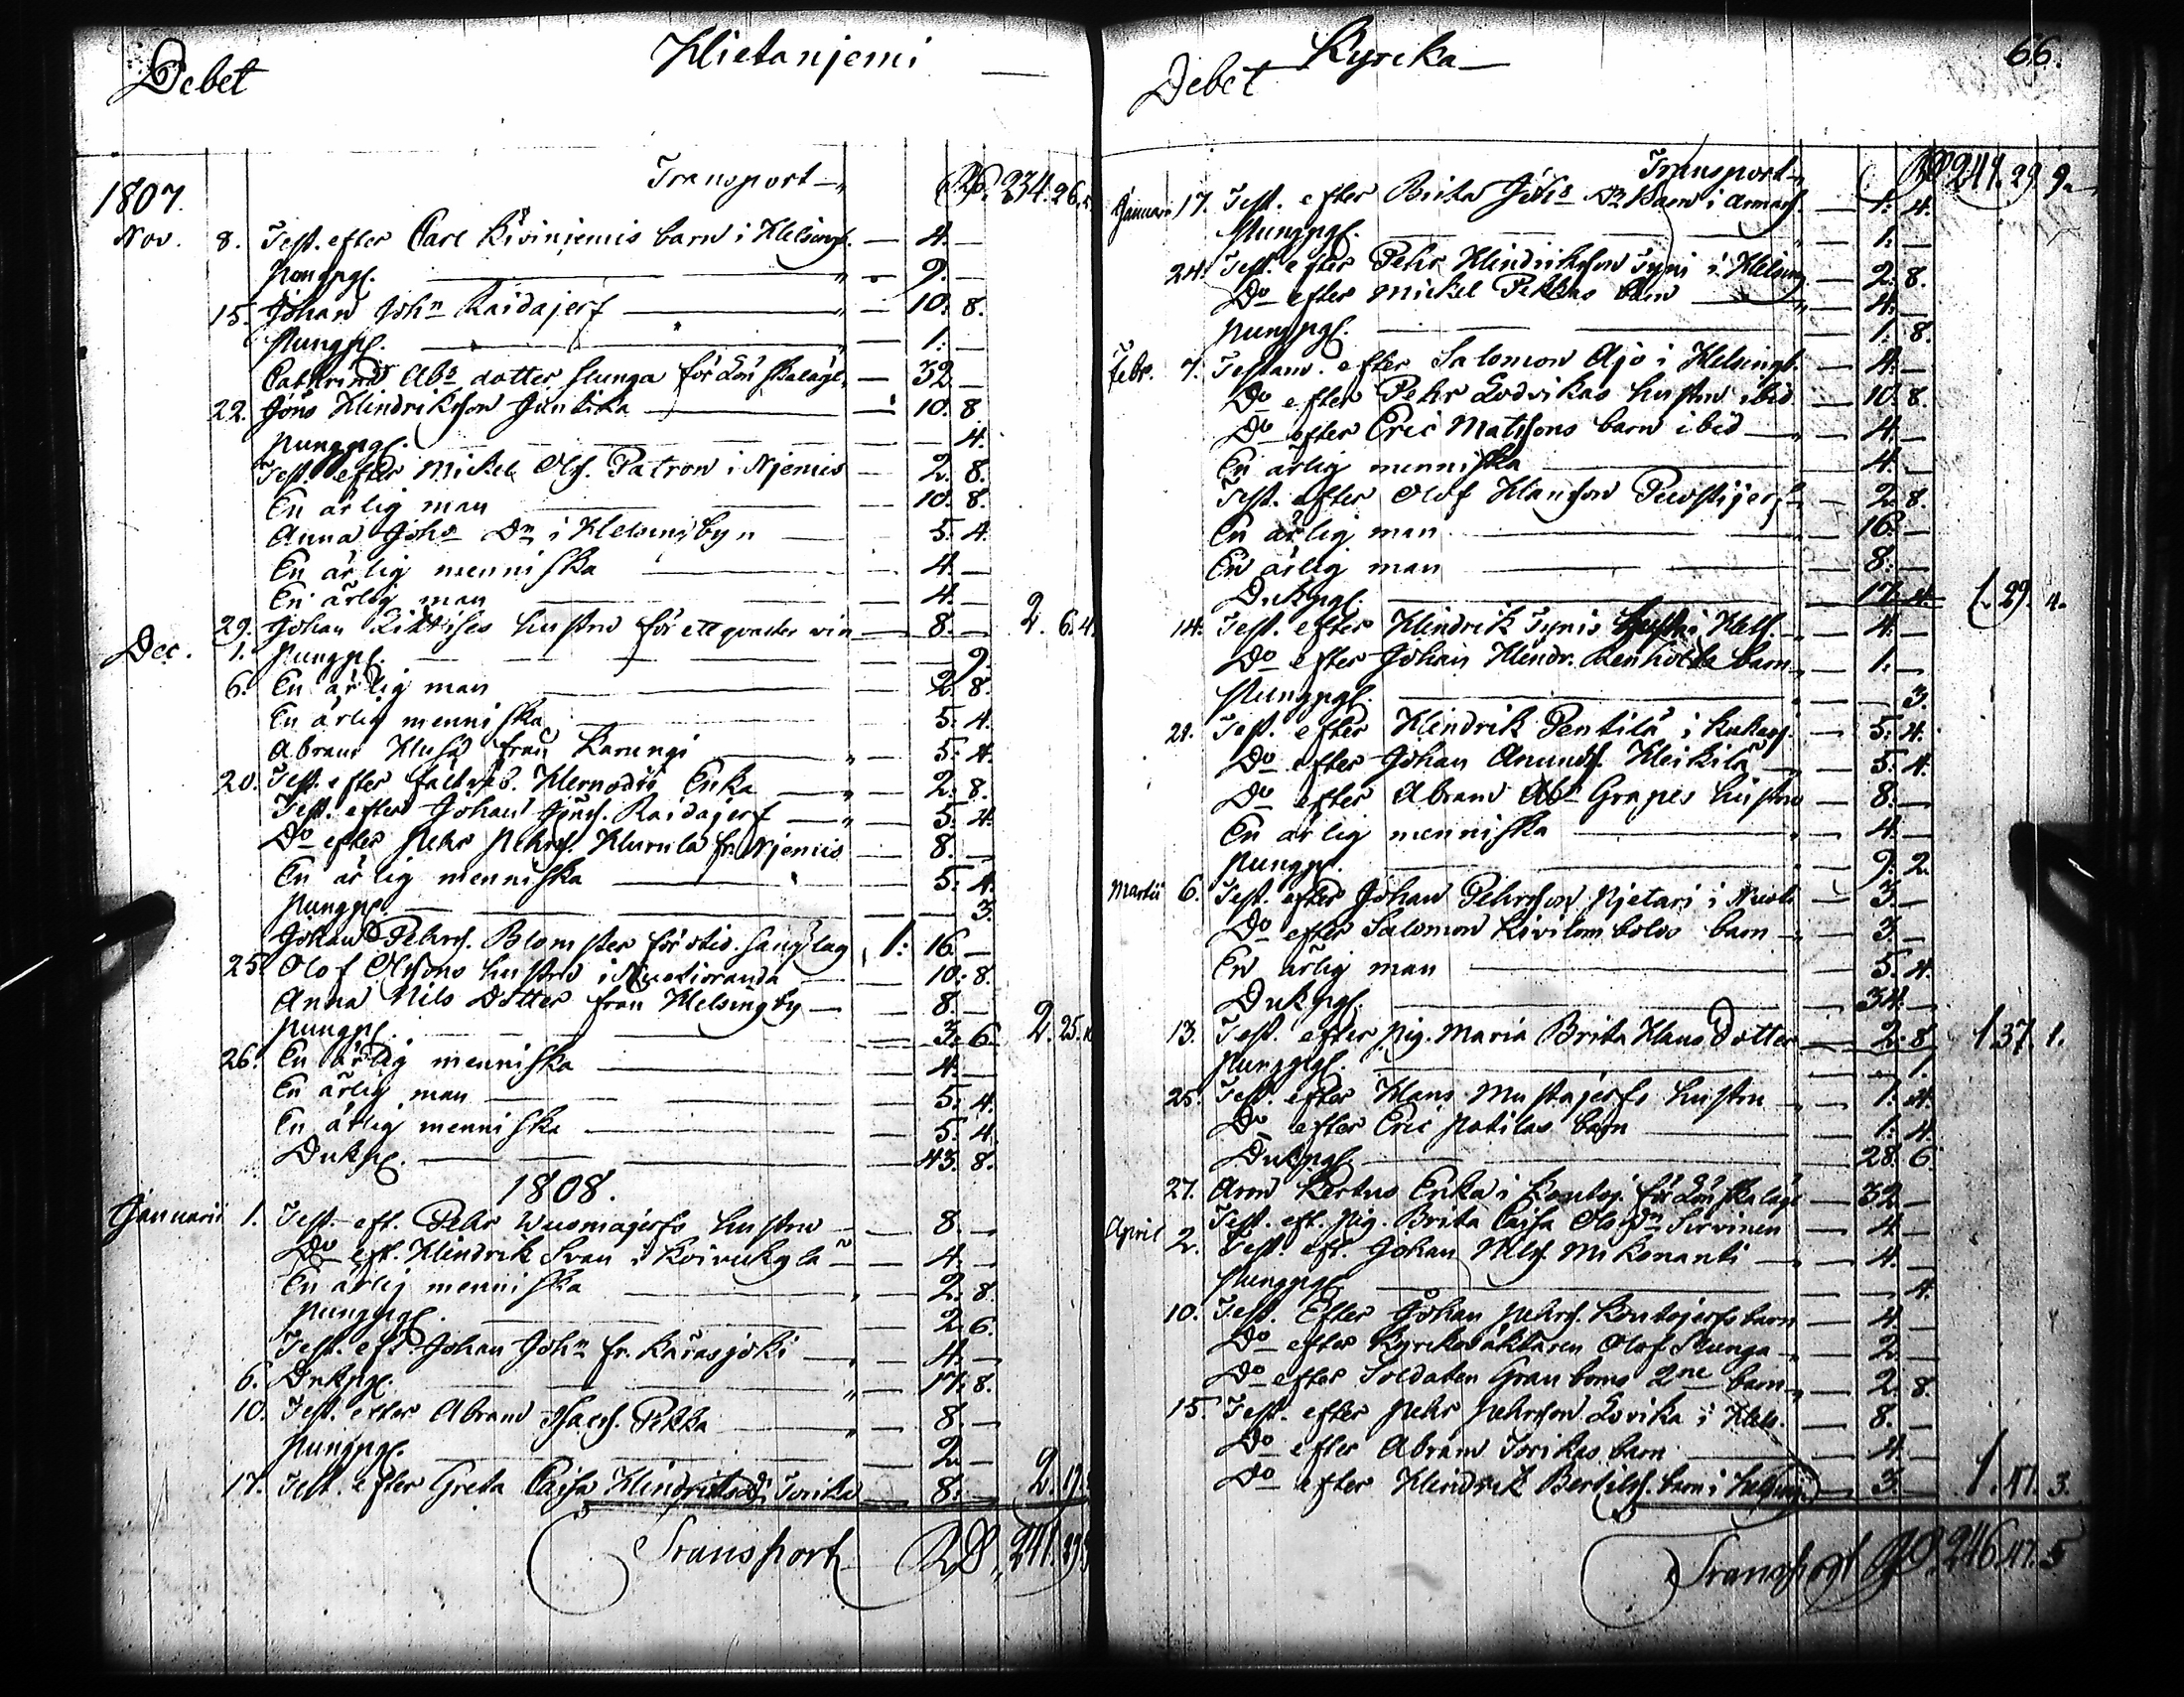 Debet Hietaniemi
Transport Rd. 234. 26.
1807.
Nov. 8. Test. efter Carl Kiviniemis barn i Helsingb. 4. —
Pungpg. 9. —
15. Johan John Raidajerf 10. 8.
Pungpg. 1: —
Cathrina Abr dotter Slunga för Lön skalägl. 32 —
22. Jöns Hindriksson Juntika 10. 8
Pungpg. 4.
Test. efter Mickel Olss. Patron i Njemis 2. 8.
En ärlig man 10. 8.
Anna Johs Dr i Helsingbyn 5. 4.
En ärlig menniska 4. —
En ärlig man 4. —
29. Johan hustru för ett qvarter vin 8. — 2. 6. 4.
Dec. 1. Pungpg. 9.
6. En ärlig man 2. 8.
En ärlig menniska 5. 4.
Abram Husa från Karungi 5. 4.
20. Test. efter Enka 2. 8.
Test. efter Johan Jöns. Raidajerf 5. 4.
Do efter Pehr Pehrs. Hurula fr. Njemis 8. —
En ärlig menniska 5. 4.
Pungpg. 3.
Johan Pehrs. Blomster för otid. sänglag 1: 16 —
25. Olof Olssons hustru i Nuotioranda 10. 8.
Anna Nils Dotter från Helsingby 8. —
Pungpg. 3. 6. 2. 25.
26. En ärlig menniska 4. —
En ärlig man 5. 4.
En ärlig menniska 5. 4.
Dukpg. 43. 8.
1808.
Januarii 1. Test. eft. Pehr Wuomajerfs hustru 8. —
Do eft. Hindrik Svan i Koivukylä 4. —
En ärlig menniska 2. 8.
Pungpg. 2. 6.
Test. eft. Johan John fr. Karasjoki 4. —
6. Dukpg. 17. 8.
10. Test. efter Abram Isacs. Pekka 8. —
Pungpg. 2 —
17. Test. efter Greta Cajsa Hindriksd. Torika 8. — 2. 19.
Transport Rd. 241. 29.
Debet Kyrcka 66.
Transport Rd 241. 29. 9.
Januari 17. Test. efter Brita Johs Dr Barn i 1. 4.
Pungpg. 1. —
24. Test. efter Pehr Hindriksson Tyni i Helsing. 2. 8.
Do efter Mickel Pekkas barn 4. —
Pungpg. 1. 8.
Febr. 7. Testam. efter Salomon Ajo i Helsingb. 4. —
Do efter Pehr Lodvikas hustru ibid. 10. 8.
Do efter Eric Matssons barn ibid 4. —
En ärlig menniska 4. —
Test. efter Olof Hansson Puostijerf 2. 8.
En ärlig man 16. —
En ärlig man 8. —
Dukpg. 17. 4. 1. 29. 4.
14. Test. efter Hindrik Tynis i Hels. 4. —
Do efter Johan Hindr. Renholta barn 1. —
Pungpg. 3.
21. Test. efter Hindrik Pentilä i 5. 4.
Do efter Johan Amunds. Heikilä 5. 4.
Do efter Abram Abr Grapes hustru 8. —
En ärlig menniska 4. —
Pungpg. 9. 2.
Martii 6. Test. efter Johan Pehrsson Njetari i 3. —
Do efter Salomon Kivilombolos barn 3. —
En ärlig man 5. 4.
Dukpg. 34. —
13. Test. efter pig. Maria Brita Hans Dotter 2. 8. 1. 37. 1.
Pungpg. 1.
25. Test. efter Hans Mustajerfs hustru 1. 4.
Do efter Eric Potilas barn 1. 4.
Dukpg. 28. 6.
27. Aron Kertus Enka i Kontoj. för Lönskaläge 32 —
April Test. eft. pig. Brita Cajsa Olofs Dr Sirvinen 4. —
2. Test. eft. Johan Nils. Mikonanti 4. —
Pungpg. 4.
10. Test. Efter Johan Pehrs. Kontojerfs barn 4. —
Do efter Kyrkoväktaren Olof Slunga 2. —
Do efter Soldaten Granboms 2ne barn 2. 8.
15. Test. efter Pehr Pehrsson Lovika i Hels. 8. —
Do efter Abram Torikas barn 4. —
Do efter Hindrik Bertils. barn i Helsing. 3. — 1. 41. 3.
Transport Rd. 246. 47. 5